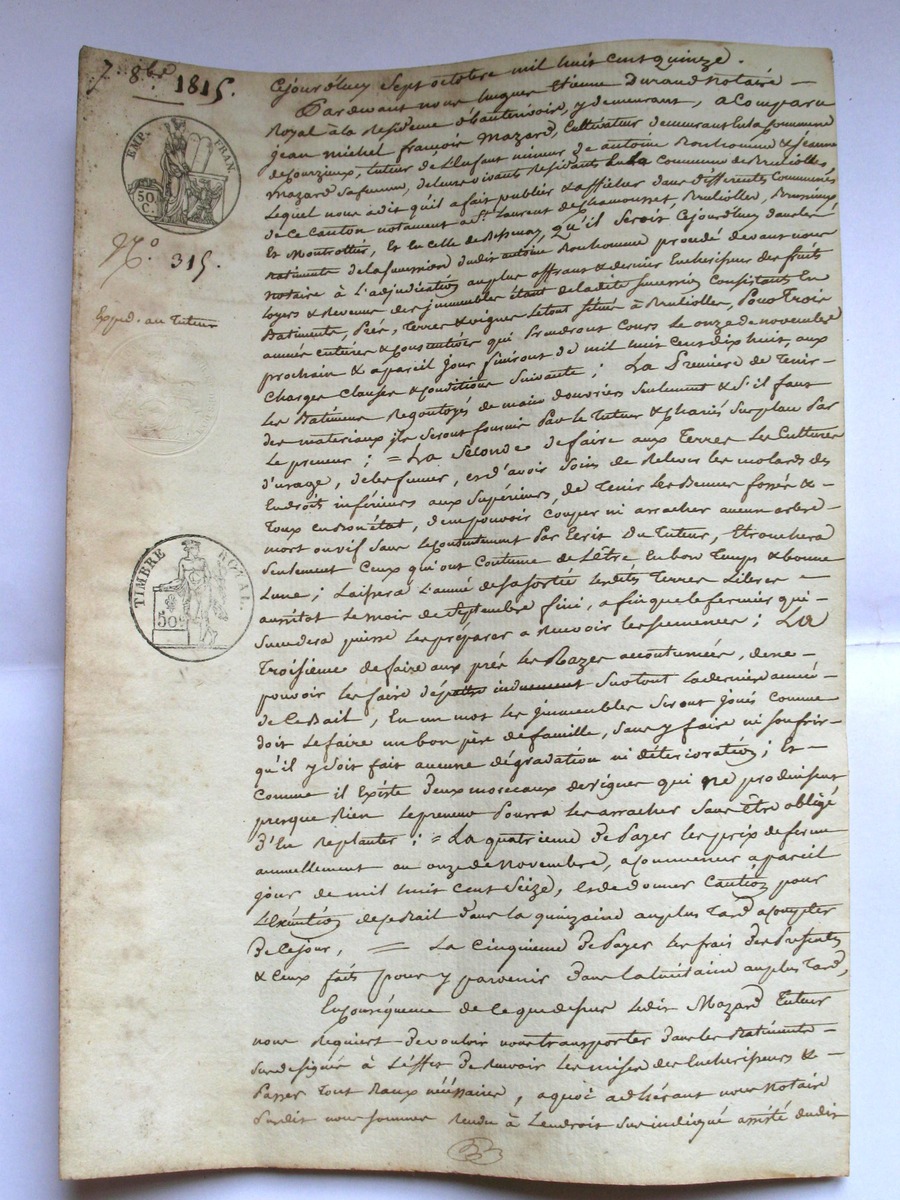 7. 8bre 1815.
EMP. FRAN.
50 C.
N.o 315.
Exped. au Tuteur
TIMBRE ROYAL.
50 C
Cejourd'huy Sept octobre mil huit cent quinze.
Pardevant nous hugues Etienne Durand Notaire —
Royal à la Résidence d'hauterivoire, y demeurant, a Comparu
jean michel françois Mazard, Cultivateur demeurant en la Commune
de Courzieux, tuteur de L'Enfant mineur de antoine Bonhomme & jeanne
Mazard Sa femme, de leur vivant Residants En la Commune de Brulliolles,
Lequel nous a dit qu'il a fait publier & afficher dans différentes Communes
de Ce Canton notament a St. Laurent de Chamousset, Brulliolles, Brussieux
Et Montrottier, Et En Celle de Bessenay, qu'il Seroit Cejourd'huy dans les
Batiments de la Succession dudit antoine Bonhomme procédé devant nous
Notaire à L'adjudication au plus offrant & dernier Encherisseur des fruits
Loyers & Revenus des immeubles étant de la dite Succession Consistants En
Batiments, Prés, Terres & vignes Le tout Situé à Brulliolles, Pour Trois
années entières & Consécutives qui Prendront Cours Le onze de novembre
prochain & a pareil jour finiront de mil huit Cent dix huit, aux
Charges Clauses & Conditions Suivantes ; La Premiere de Tenir —
Les Batiments Regoutoyés de main d'ouvriers Seulement & S'il faut
des materiaux ils Seront fournis Par Le Tuteur & Chariés Sur place Par
Le preneur ; = La Seconde de faire aux Terres Les Cultures
d'usage, de les fumer, et d'avoir Soin de Relever les molards des
Endroits inférieurs aux Supérieurs, de Tenir Les Bennes fossés & —
Toux en Bon état, de ne pouvoir Couper ni arracher aucun arbre —
mort ou vif Sans Le Consentement Par Ecrit Du Tuteur, Etronchera
Seulement Ceux qui ont Coutume de L'être En bon Temps & bonne
Lune ; Laissera L'année de Sa Sortie Lesdites Terres Libres —
aussitot Le mois de Septembre fini, afin que le fermier qui —
Succedera puisse Les préparer a Recevoir les Semences ; La
Troisieme de faire aux prés Les Razes accoutumées, de ne
pouvoir les faire dépaitre induement Surtout La derniere année
de Ce Bail, En un mot Les Immeubles Seront jouis Comme
doit Le faire un bon père de famille, Sans y faire ni Souffrir —
qu'il y Soit fait aucune dégradation ni détérioration ; Et —
Comme il Existe Deux morceaux de vignes qui ne produisent
presque Rien Le preneur Pourra Les arracher Sans être obligé
d'En Replanter ; = La quatrieme De Payer Les prix de ferme
annuellement au onze de Novembre, a Commencer a pareil
jour de mil huit Cent Seize, et de donner Caution pour
L'Exécution de Ce Bail Dans la quinzaine au plus Tard a Compter
De Ce jour, = La Cinquieme De Payer Les frais Des Présentes
& Ceux faits pour y parvenir Dans La huitaine au plus Tard,
En Conséquence de Ce que dessus Ledit Mazard Tuteur
nous Requiert De vouloir nous transporter Dans Les Batiments —
Sus designés à L'effet De Recevoir Les mises des Encherisseurs & —
Passer Tout Baux nécéssaires, a quoi adhérant nous Notaire
Susdit nous Sommes Rendu à L'endroit Sus indiqué assisté dudit